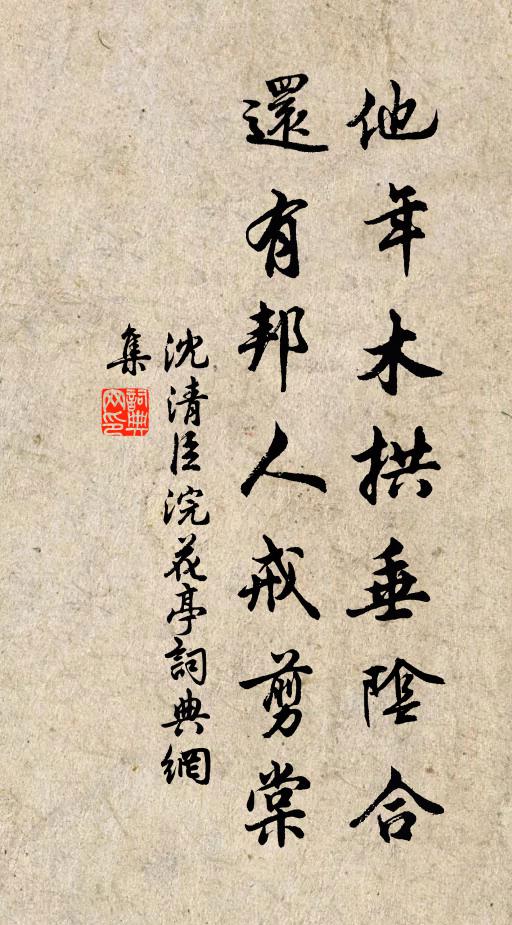 他年木拱垂陰合
還有邦人戒剪棠
沈清臣浣花亭詞典網
集
詞典网印